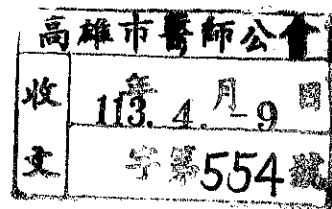 高雄市醫師公會
收文
年月日
113. 4. -9
字第554號